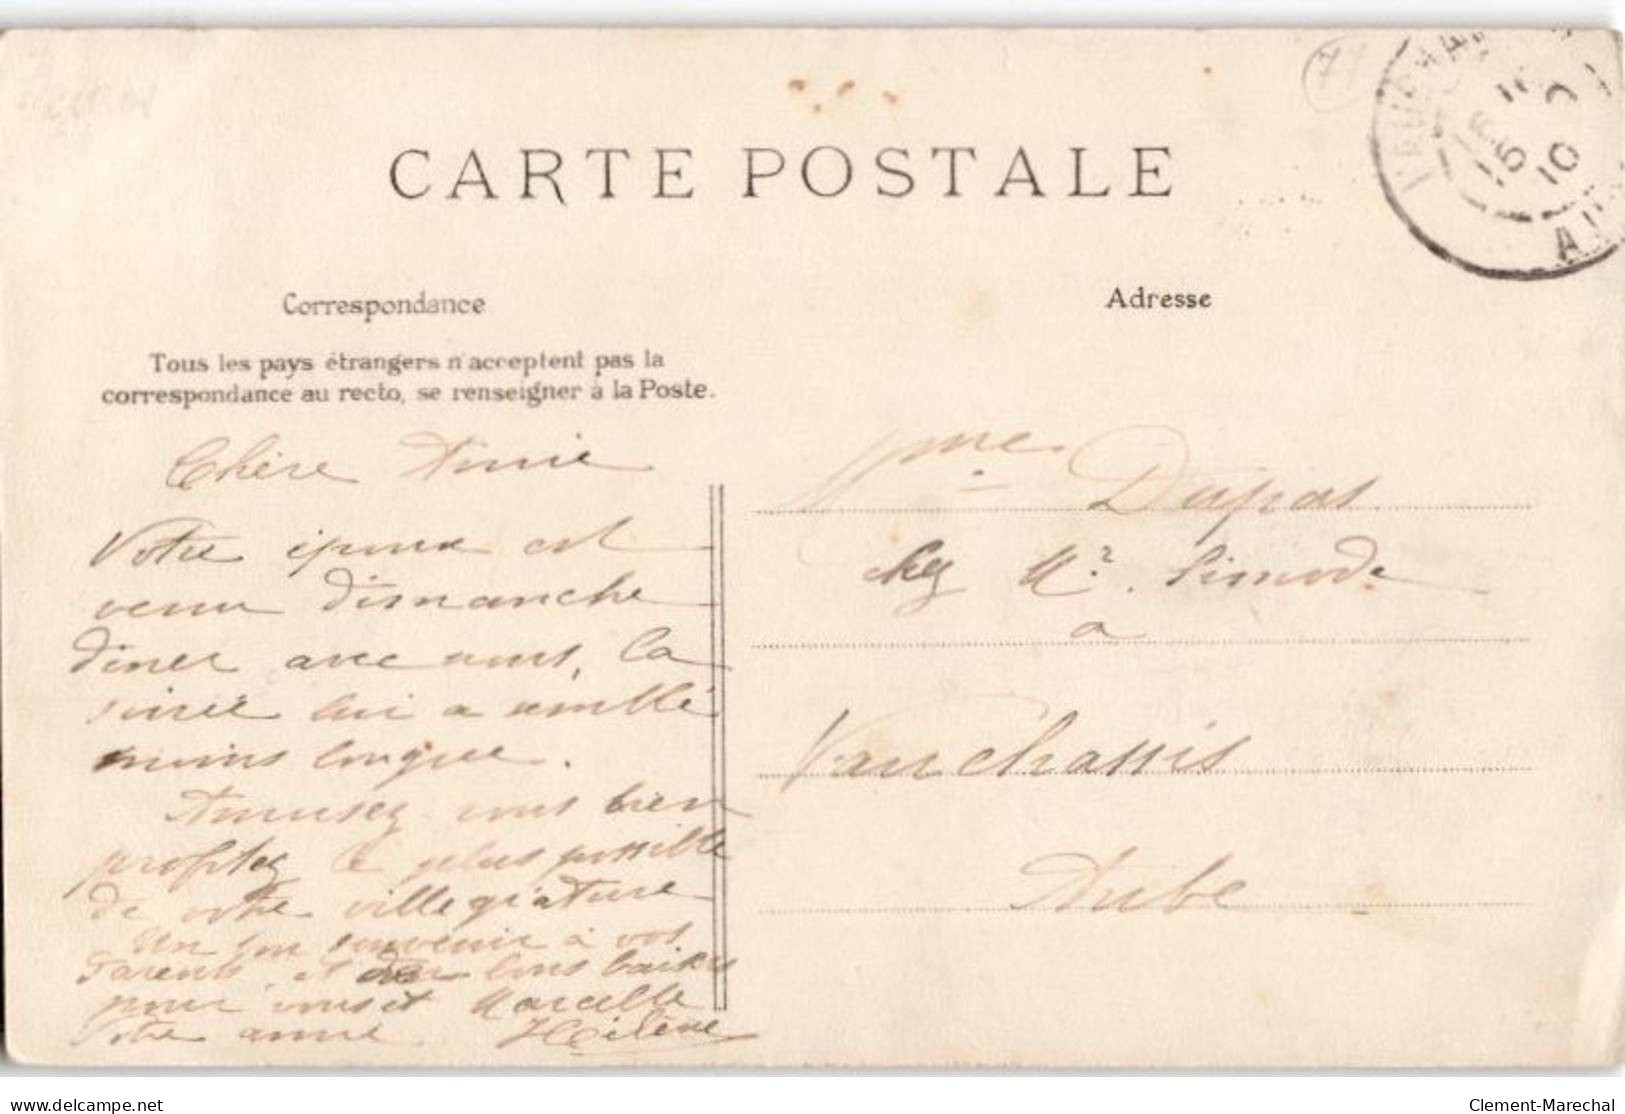 CARTE POSTALE
Correspondance
Tous les pays étrangers n'acceptent pas la
correspondance au recto, se renseigner à la Poste.
Chère Amie
Votre époux est
venu dimanche
dîner avec nous, la
soirée lui a semblé
moins longue.
Amusez vous bien
profitez le plus possible
de votre villegiature
Un bon souvenir à vos
Parents, et bons baisers
pour vous et Marcelle
Votre amie Hélène
Adresse
Mme Dupas
chez Mr. Simode
a
Vauchassis
Aube
15
10
delcampe.net
Clement-Marechal